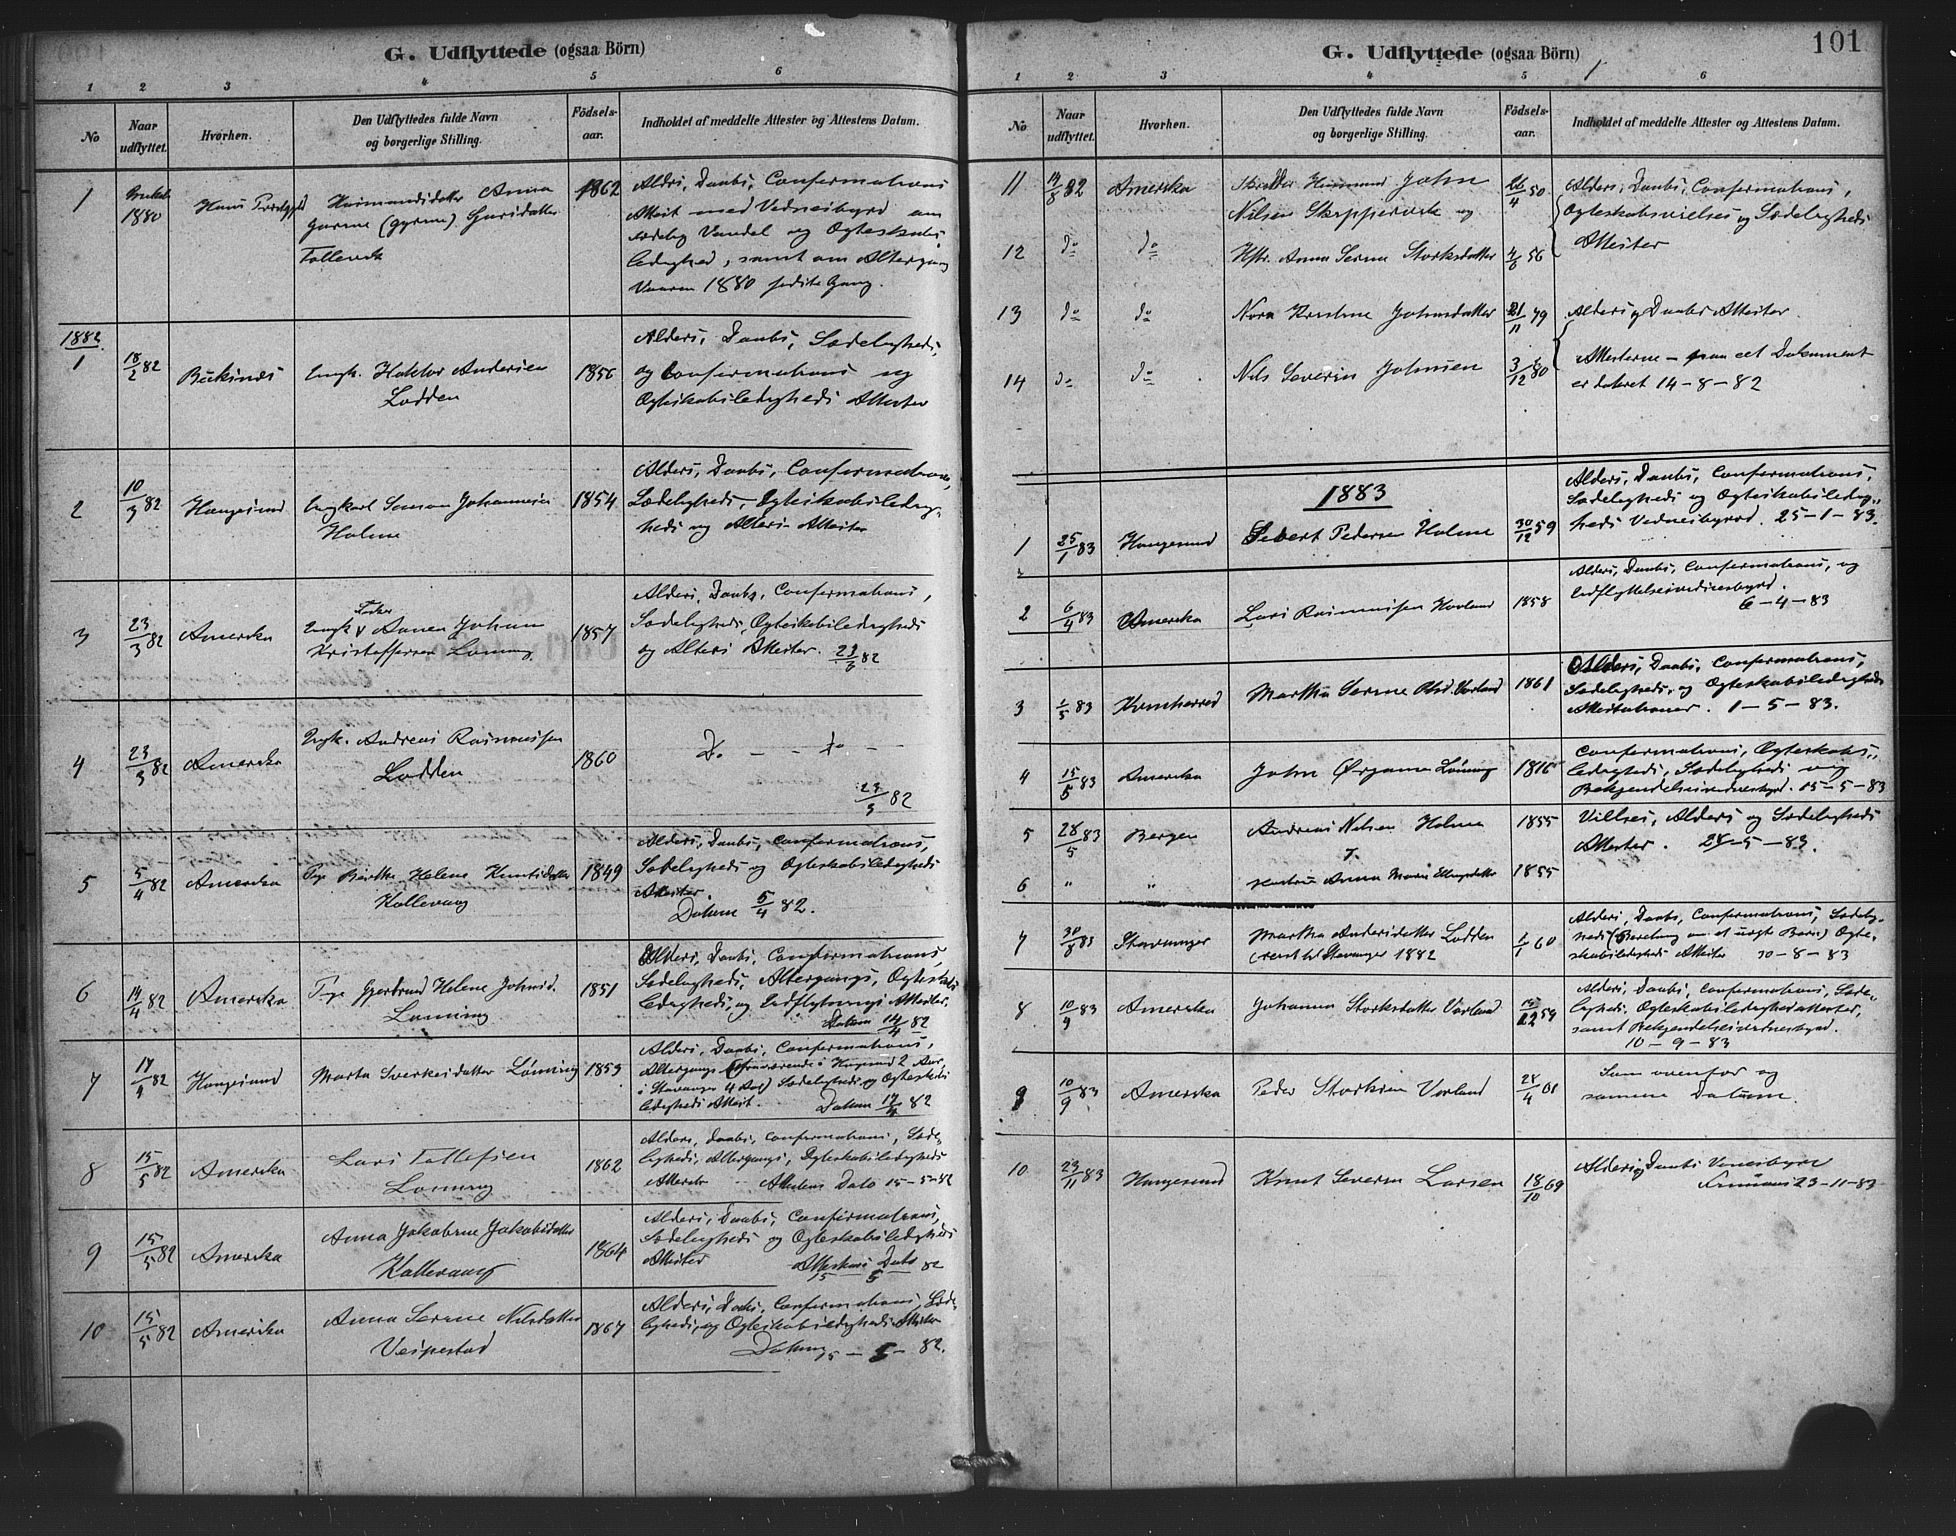 G. Udflyttede (ogsaa Börn)
1 2 3 4 5 6
No
Naar udflyttet.
Hvorhen.
Den Udflyttedes fulde Navn
og borgerlige Stilling.
Födsels-
aar.
Indholdet af meddelte Attester og Attestens Datum.
1 1880 Anna 1862 Alders, Daabs, Confermations
Attest med Vidnesbyrd om
sædelig Vandel og Ogteskabs
ledighed, samt om Altergang
Vaaren 1880 sidste Gang.
1882
1 18/2 82 Ungk. Andersen 1856 Alders, Daabs, Sædeligheds,
Lodden og Confermations og
Ogteskabsledigheds Attester
2 10/3 82 Haugesund Ungkarl Johannesen 1854 Alders, Daabs, Confermations,
Holme Sædeligheds, Ogteskabsledig-
heds og Alders Attester
3 23/3 82 Amerika Ungk. Johan 1857 Alders, Daabs, Confermations,
Kristoffersen Lonning Sædeligheds, Ogteskabsledigheds
og Alders Attester. 23/3 82
4 23/3 82 Amerika Ungk. Andreas Rasmussen 1860 Do — — do — —
Lodden 23/3 82
5 5/4 82 Amerika Pge Berthe Helene Knutsdatter 1849 Alders, Daabs, Confermations,
Kallevaag Sædeligheds og Ogteskabsledigheds
Attester
Datum 5/4 82.
6 14/4 82 Amerika Pge Gjertrud Helene Johnsd. 1851 Alders, Daabs, Confermations,
Lonning Sædeligheds, Altergangs, Ogteskabs
ledigheds, og Udflytnings Attester.
Datum 14/4 82
7 17/4 82 Haugesund Marta Sverkesdatter Lönning 1859 Alders, Daabs, Confermations,
Altergangs 2 Aar
i Stavanger 4 Aar) Sædeligheds og Ogteskabs
ledigheds Attest. Datum 17/4 82
8 15/5 82 Amerika Lars Tollefsen 1862 Alders, Daabs, Confermations, Sæde-
Lonning ligheds, Altergangs, Ogteskabsledigheds
Attester Attestens Dato 15-5-82
9 15/5 82 Amerika Anna Jakobine Jakobsdatter 1864 Alders, Daabs, Confirmations,
Kallevaag Sædeligheds og Ogteskabsledigheds
Attester Dato 15 5 82
10 15/5 82 Amerika Anna Serine Nilsdatter 1867 Alders, Daabs, Confermations, Sæde-
Vespestad ligheds, og Ogteskabsledigheds Attester
Datum 15 — 5 — 82.
G. Udflyttede (ogsaa Börn)
101
1 2 3 4 5 6
No
Naar udflyttet.
Hvorhen.
Den Udflyttedes fulde Navn
og borgerlige Stilling.
Födsels-
aar.
Indholdet af meddelte Attester og Attestens Datum.
11 14/8 82 Amerika John 26/4 50 Alders, Daabs, Confermations,
Nilsen og Ogteskabsvielses og Sædeligheds
12 do do Hstr. Anna Serine Storksdatter 4/6 56 Attester
13 do do Nora Kristine Johnsdatter 21/11 79 Alders og Daabs Attester.
14 do do Nils Severin Johnsen 3/12 80 Attesterne — paa eet Dokument
er dateret 14-8-82
1883
1 25/1 83 Haugesund Sebert Pedersen Holme 30/12 59 Alders, Daabs, Confermations,
Sædeligheds og Ogteskabsledig-
heds Vidnesbyrd. 25-1-83.
2 6/4 83 Amerika Lars Rasmussen Hovland 1858 Alders, Daabs, Confermations, og
Udflyttelsesvidnesbyrd.
6-4-83
3 1/5 83 Kvinherred Martha Serine Olsd. Vorland 1861 Alders, Daabs, Confermations,
Sædeligheds, og Ogteskabsledigheds
Attestationer. 1-5-83.
4 15/5 83 Amerika John Ørjansen Lönning Confermations, Ogteskabs-
ledigheds, Sædeligheds og
Bekjendelsesvidnesbyrd. 15-5-83
5 28/5 83 Bergen Andreas Nilsen Holme 1855 Vielses, Alders og Sædeligheds
Attester. 28-5-83.
6 " " Hustru Anna Marie 1855
7 30/8 83 Stavanger Martha Andersdatter Lodden 1/1 60 Alders, Daabs, Confermations, Sædelig-
(reist til Stavanger 1882 heds (Beretning om et uægte Barn) Ogte-
skabsledigheds Attester 30-8-83
8 10/9 83 Amerika Johanna Storksdatter Vorland 12 59 Alders, Daabs, Confermations, Sæde-
ligheds, Ogteskabsledighedsattester,
samt Bekjendelsesvidnesbyrd.
10-9-83
9 10/9 83 Amerika Peder Storksen Vorland 28/4 61 Som ovenfor og
samme Datum.
10 23/11 83 Haugesund Knut Severin Larsen 18/10 69 Alders og Daabs
23-11-83